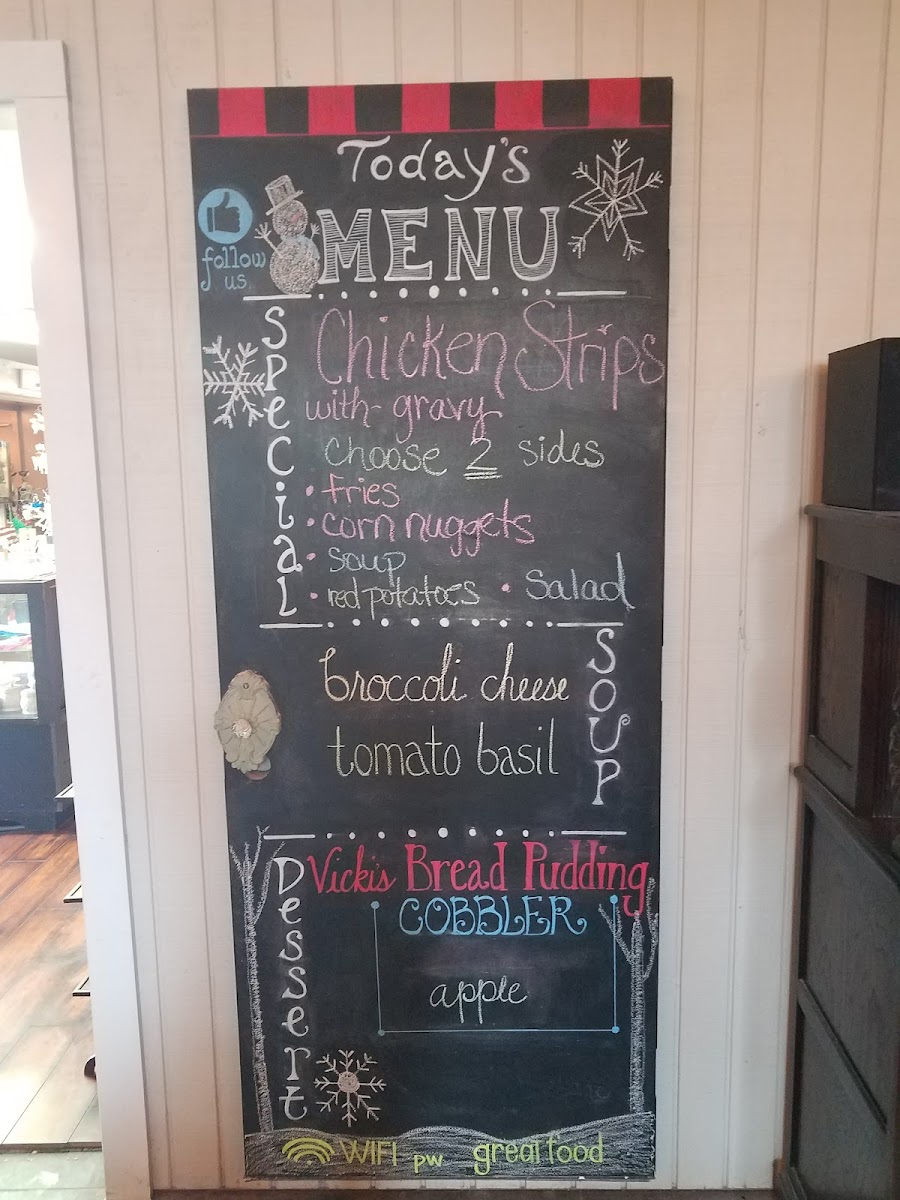 Today's
MENU
follow
us
Special
Chicken Strips
with gravy
Choose 2 sides
• fries
• corn nuggets
• soup
• red potatoes • Salad
SOUP
broccoli cheese
tomato basil
Dessert
Vicki's Bread Pudding
COBBLER
apple
WIFI pw greatfood